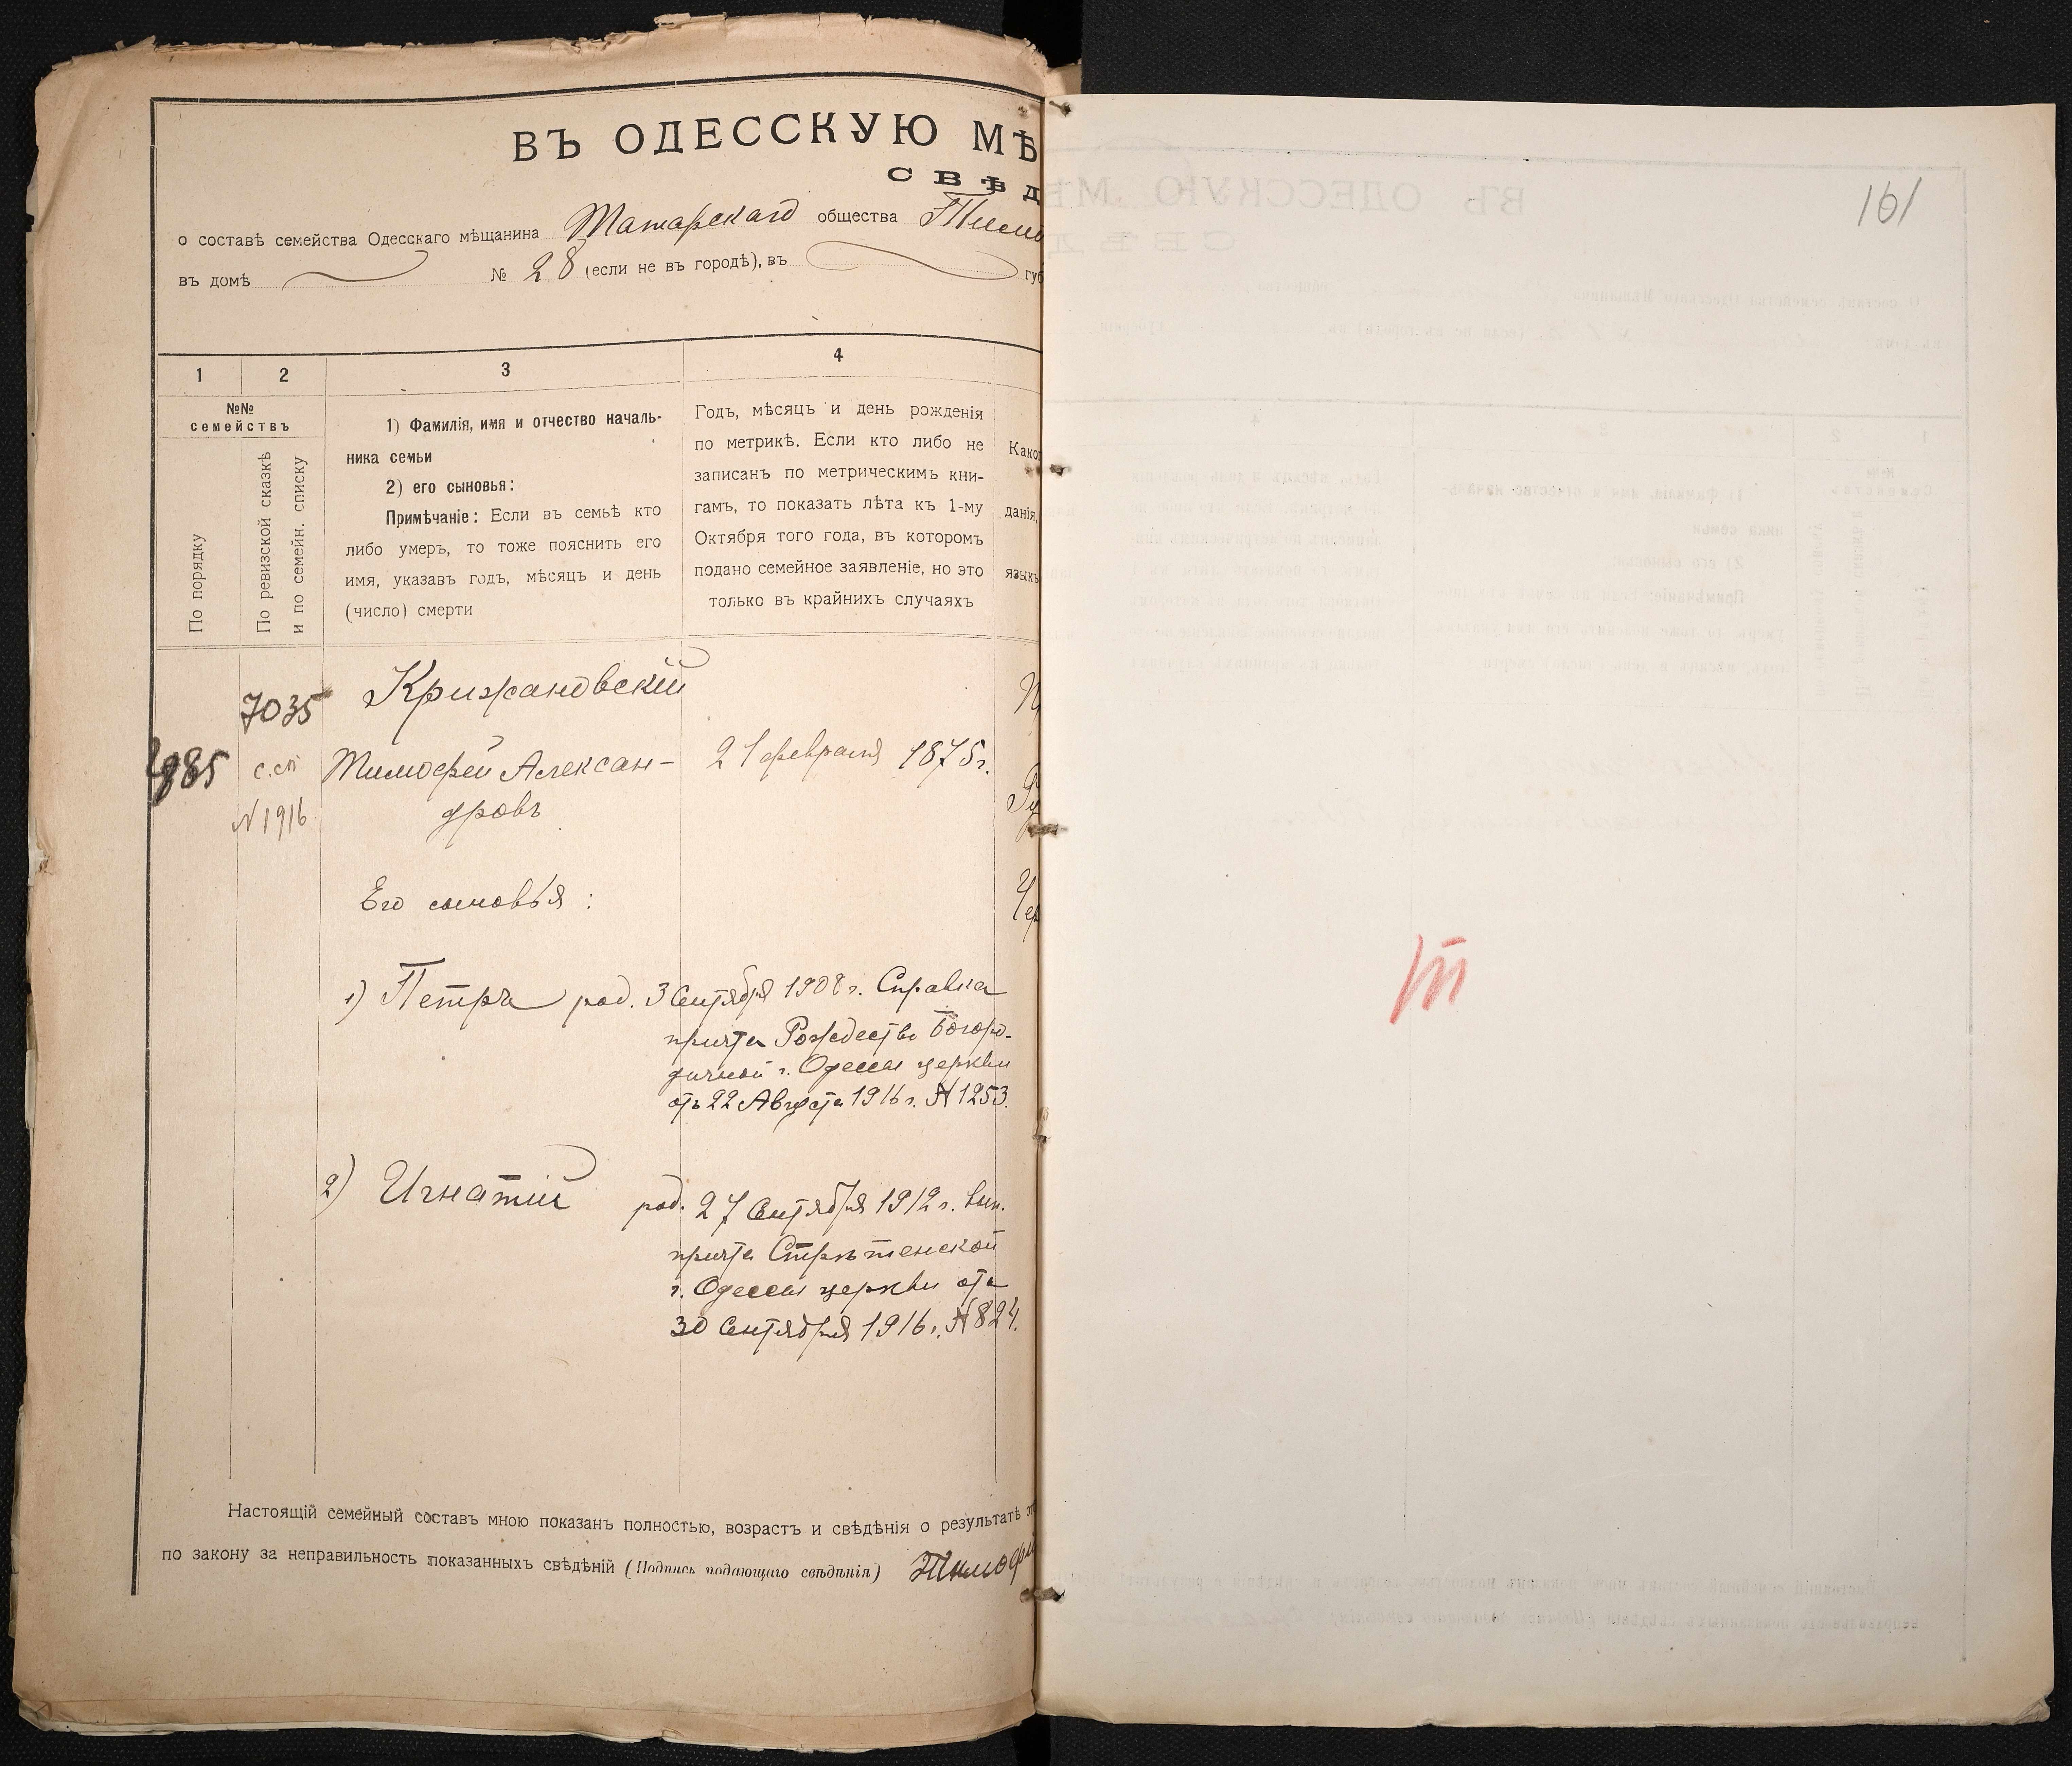 ВЪ ОДЕССКУЮ МѢ
СВѢД
о составѣ семейства Одесскаго мѣщанина Татарскаго общества Тимо
въ домѣ № 28 (если не въ городѣ), въ губ
1 2 3 4
№№
семействъ
По порядку
По ревизской сказкѣ
и по семейн. списку
1) Фамилія, имя и отчество началь-
ника семьи
2) его сыновья:
Примѣчаніе: Если въ семьѣ кто
либо умеръ, то тоже пояснить его
имя, указавъ годъ, мѣсяцъ и день
(число) смерти
Годъ, мѣсяцъ и день рожденія
по метрикѣ. Если кто либо не
записанъ по метрическимъ кни-
гамъ, то показать лѣта къ 1-му
Октября того года, въ которомъ
подано семейное заявленіе, но это
только въ крайнихъ случаяхъ
Како
данія,
языкъ
7035 Крижановскій
985 с.сп Тимофей Алексан- 21 февраля 1875 г.
№ 1916 дровъ
Его сыновья:
1) Петръ род. 3 Сентября 1908 г. Справка
причта Рождество Богоро-
дичной г. Одессы церкви
отъ 22 Августа 1916 г. № 1253.
2) Игнатій род. 27 Сентября 1912 г. вып.
причта Стрѣтенской
г. Одессы церкви отъ
30 Сентября 1916 г. № 824.
Настоящій семейный составъ мною показанъ полностью, возрастъ и свѣдѣнія о результатѣ от
по закону за неправильность показанныхъ свѣдѣній (Подпись подающаго свѣдѣнія) Тимофей
161